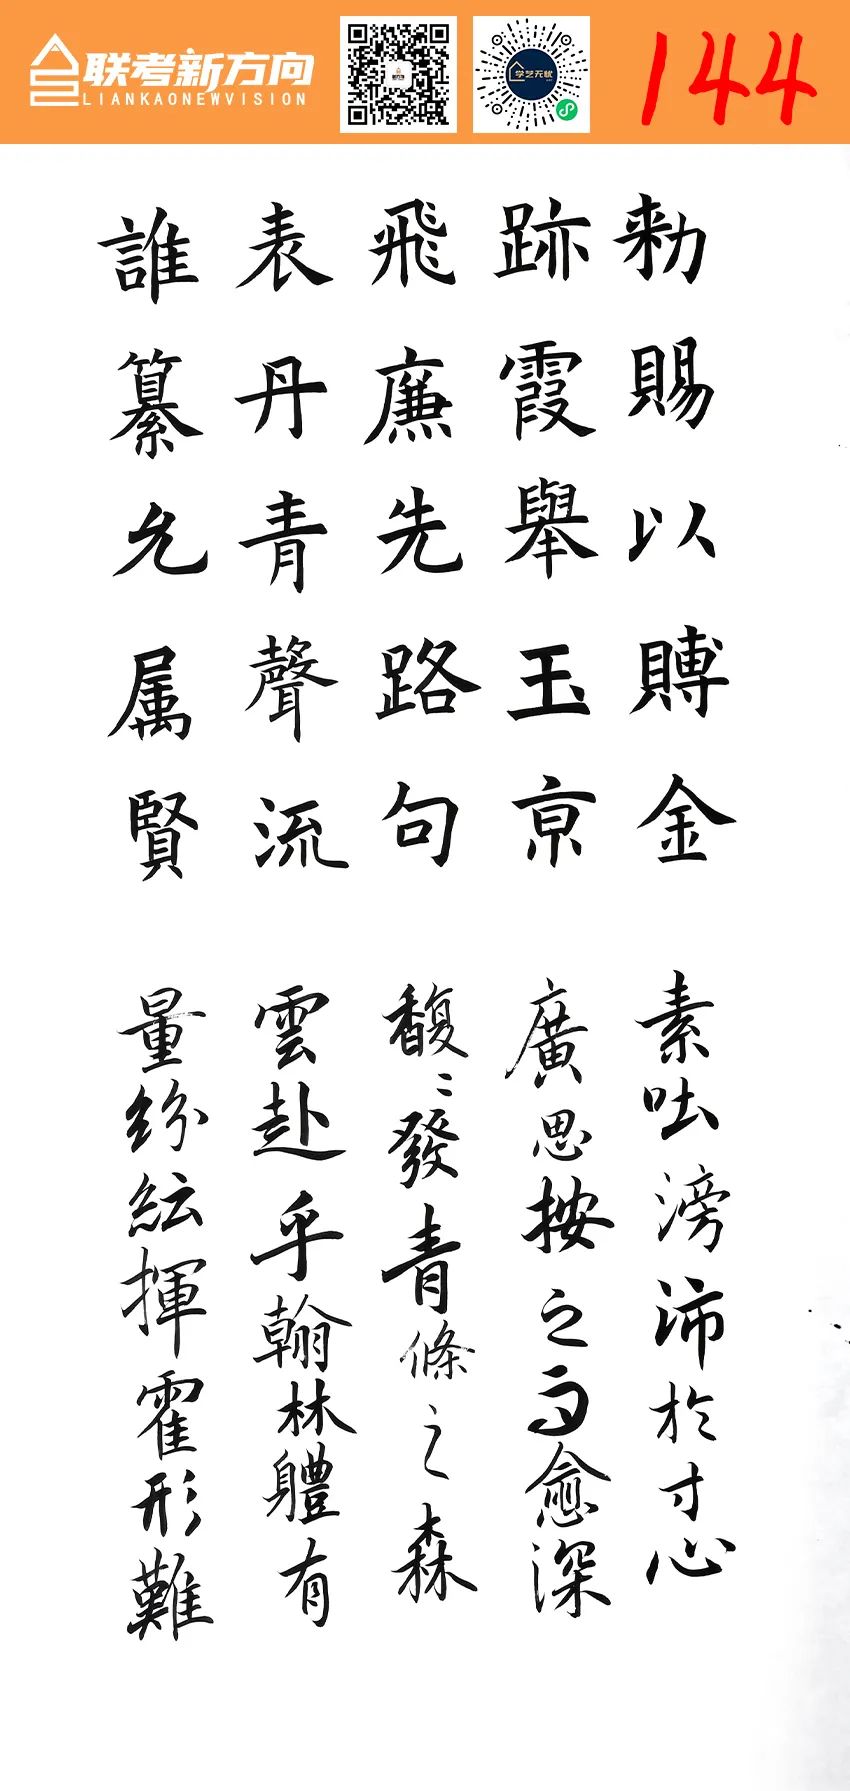 联考新方向
LIANKAONEWVISION
学艺无忧
144
勑賜以賻金
跡霞舉玉京
飛廉先路句
表丹青聲流
誰纂允属賢
素吐滂沛於寸心
廣思按之而愈深
馥〻發青條之森
雲赴乎翰林體有
量紛紜揮霍形難